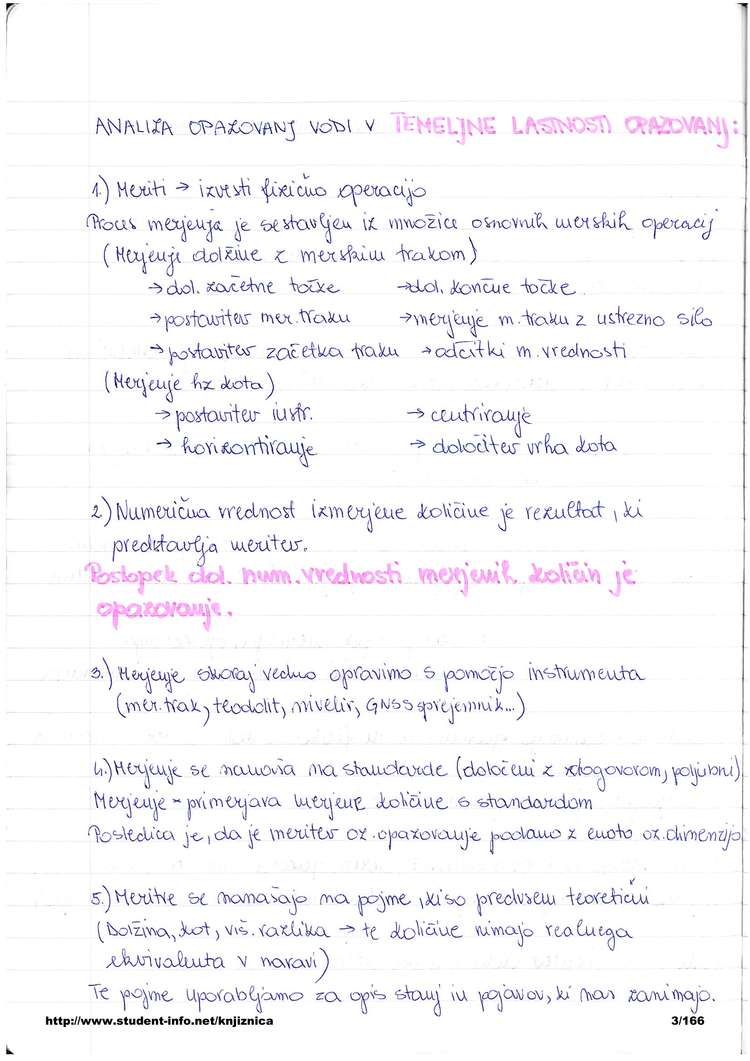 ANALIZA OPAZOVANJ VODI V TEMELJNE LASTNOSTI OPAZOVANJ:
1.) Meriti → izvesti fizično operacijo
Proces merjenja je sestavljen iz množice osnovnih merskih operacij
(Merjenje dolžine z merskim trakom)
→ dol. začetne točke → dol. končne točke
→ postavitev mer. traku → merjenje m. traku z ustrezno silo
→ postavitev začetka traku → odčitki m. vrednosti
(Merjenje hz kota)
→ postavitev instr. → centriranje
→ horizontiranje → določitev vrha kota
2.) Numerična vrednost izmerjene količine je rezultat, ki
predstavlja meritev.
Postopek dol. num. vrednosti merjenih količin je
opazovanje.
3.) Merjenje skoraj vedno opravimo s pomočjo instrumenta
(mer. trak, teodolit, nivelir, GNSS sprejemnik...)
4.) Merjenje se nanaša na standarde (določeni z dogovorom, poljubni)
Merjenje = primerjava merjene količine s standardom
Posledica je, da je meritev oz. opazovanje podano z enoto oz. dimenzijo
5.) Meritve se nanašajo na pojme, ki so predvsem teoretični
(Dolžina, kot, viš. razlika → te količine nimajo realnega
ekvivalenta v naravi)
Te pojme uporabljamo za opis stanj in pojavov, ki nas zanimajo.
http://www.student-info.net/knjiznica 3/166